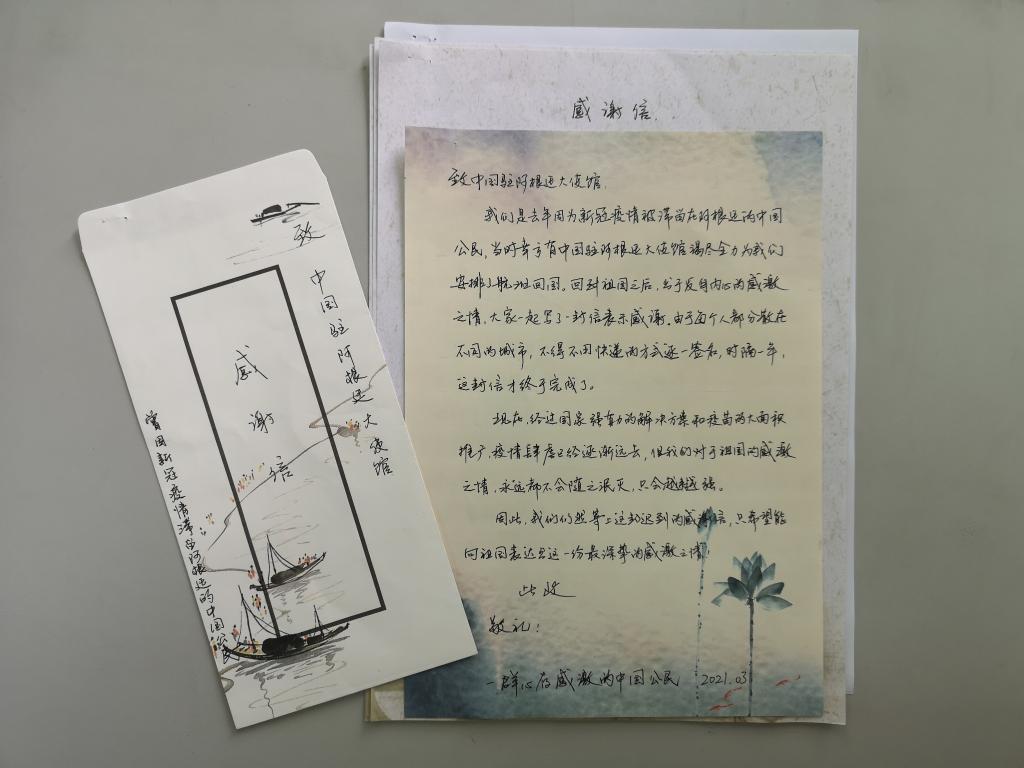 致
中国驻阿根廷大使馆
感谢信
曾因新冠疫情滞留阿根廷的中国公民
感谢信.
致中国驻阿根廷大使馆.
我们是去年因为新冠疫情被滞留在阿根廷的中国
公民,当时幸亏有中国驻阿根廷大使馆竭尽全力为我们
安排了航班回国。回到祖国之后,出于发自内心的感激
之情,大家一起写了一封信表示感谢.由于每个人都分散在
不同的城市,不得不用快递的方式逐一签名,时隔一年,
这封信才终于完成了。
现在,经过国家强有力的解决方案和疫苗的大面积
推广,疫情肆虐已经逐渐远去,但我们对于祖国的感激
之情,永远都不会随之泯灭,只会越来越强。
因此,我们仍然寄上这封迟到的感谢信,只希望能
向祖国表达出这一份最深挚的感激之情!
此致
敬礼!
一群心存感激的中国公民 2021.03